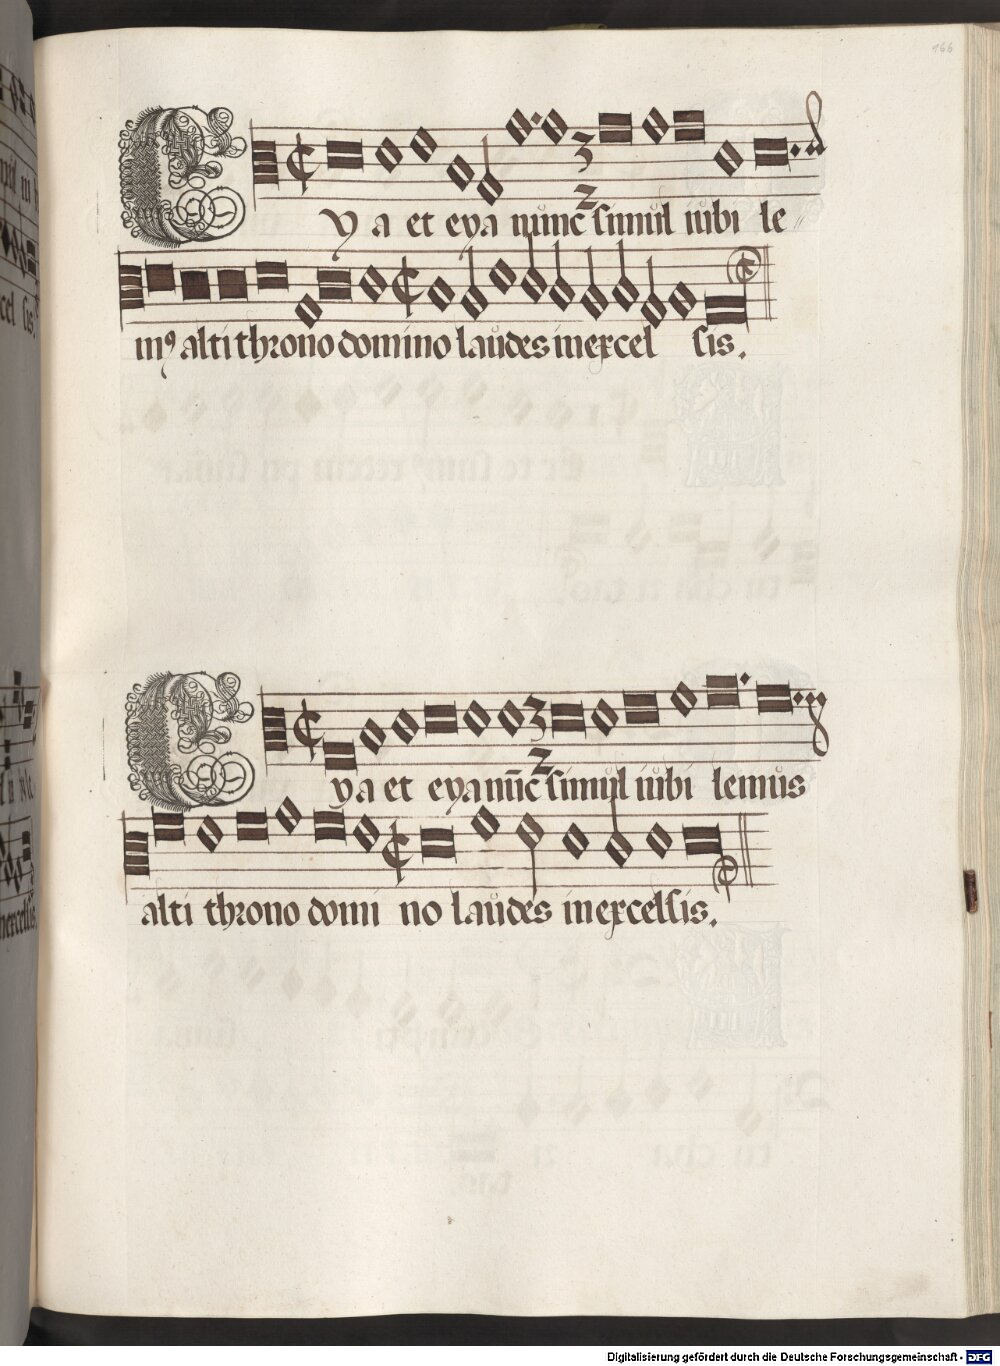 166
Eya et eya nunc simul iubi le
mꝰ alti throno domino laudes in excel sis.
Eya et eya nūc simul iubi lemus
alti throno domi no laudes in excelsis.
Digitalisierung gefördert durch die Deutsche Forschungsgemeinschaft - DFG